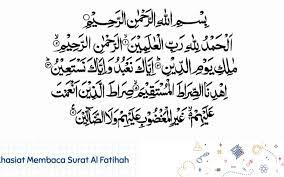 بِسْمِ اللهِ الرَّحْمٰنِ الرَّحِيْمِ
اَلْحَمْدُ لِلّٰهِ رَبِّ الْعٰلَمِيْنَ الرَّحْمٰنِ الرَّحِيْمِ
مٰلِكِ يَوْمِ الدِّيْنِ اِيَّاكَ نَعْبُدُ وَاِيَّاكَ نَسْتَعِيْنُ
اِهْدِنَا الصِّرَاطَ الْمُسْتَقِيْمَ صِرَاطَ الَّذِيْنَ اَنْعَمْتَ
عَلَيْهِمْ غَيْرِ الْمَغْضُوْبِ عَلَيْهِمْ وَلَا الضَّآلِّيْنَ
hasiat Membaca Surat Al Fatihah